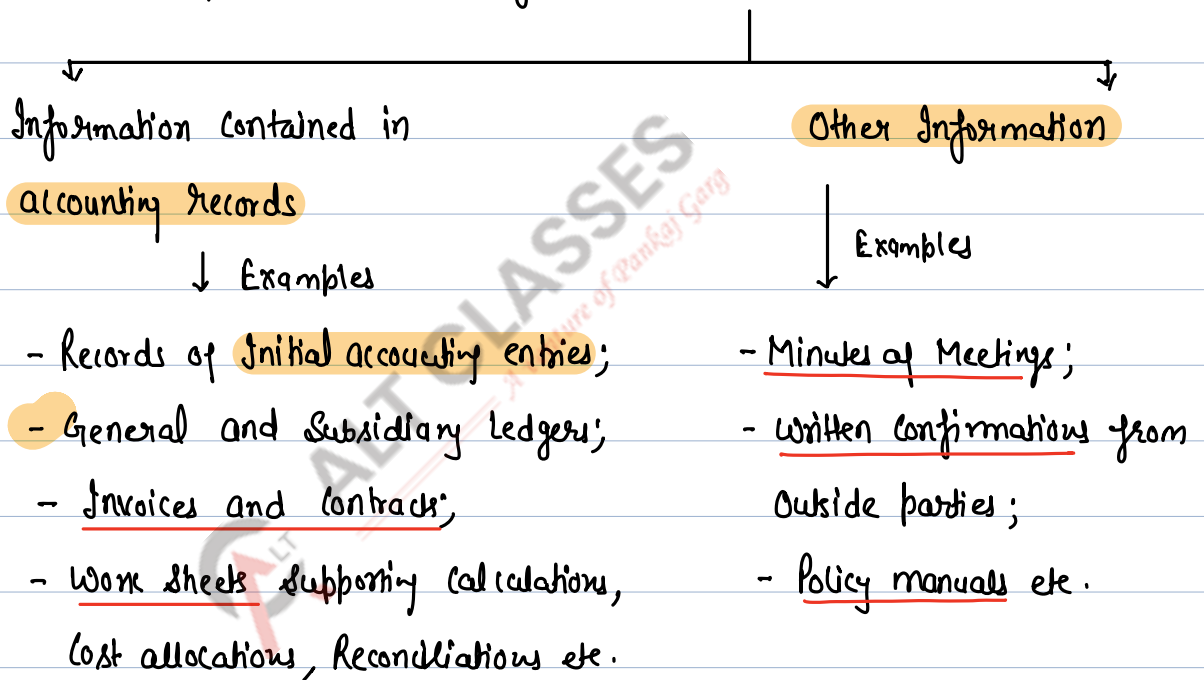 Information Contained in
accounting records
↓ Examples
- Records of Initial accounting entries;
- General and Subsidiary Ledgers;
- Invoices and Contracts;
- Work Sheets Supporting Calculations,
Cost allocations, Reconciliations etc.
Other Information
Examples
- Minutes of Meetings;
- Written Confirmations from
Outside parties;
- Policy manuals etc.
ALT CLASSES
A Venture of Pankaj Garg
ALT